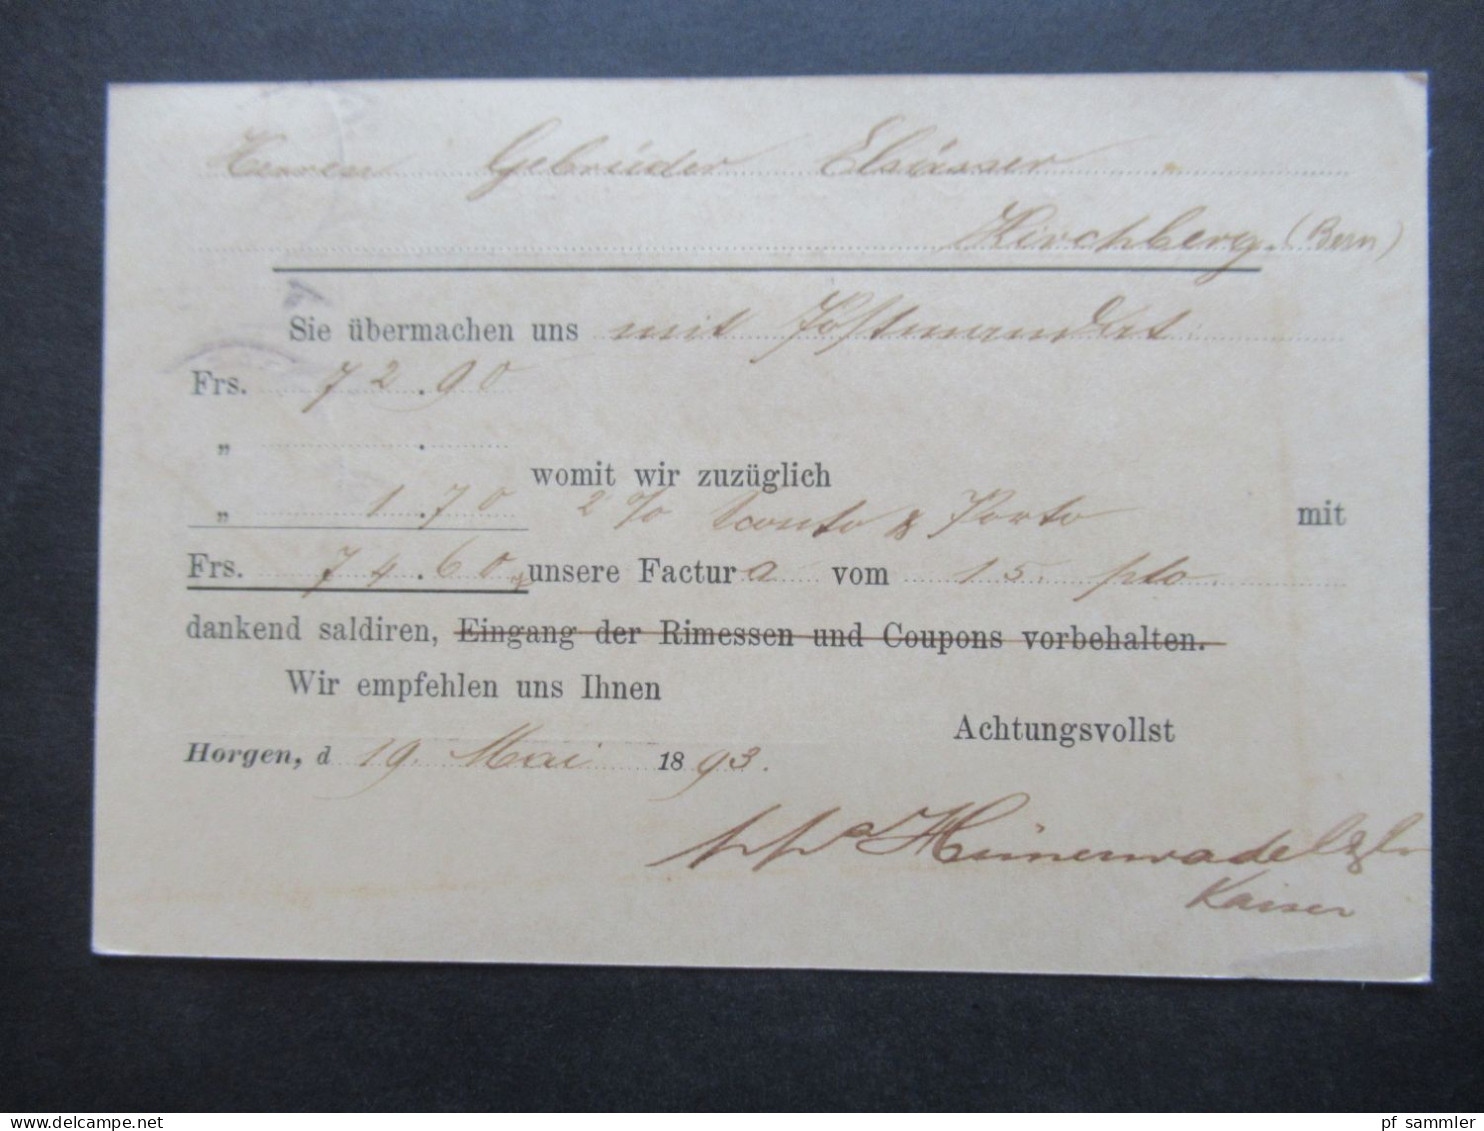 Herren Gebrüder Elsässer
Kirchberg. (Bern)
Sie übermachen uns mit Postmandat
Frs. 72.90
„ .
womit wir zuzüglich
„ 1.70 2% Sconto & Porto mit
Frs. 74.60 unsere Factura vom 15. pto
dankend saldiren, Eingang der Rimessen und Coupons vorbehalten.
Wir empfehlen uns Ihnen
Achtungsvollst
Horgen, d 19. Mai 1893.
pp Hünerwadel
Kaiser
delcampe.net
pf_sammler